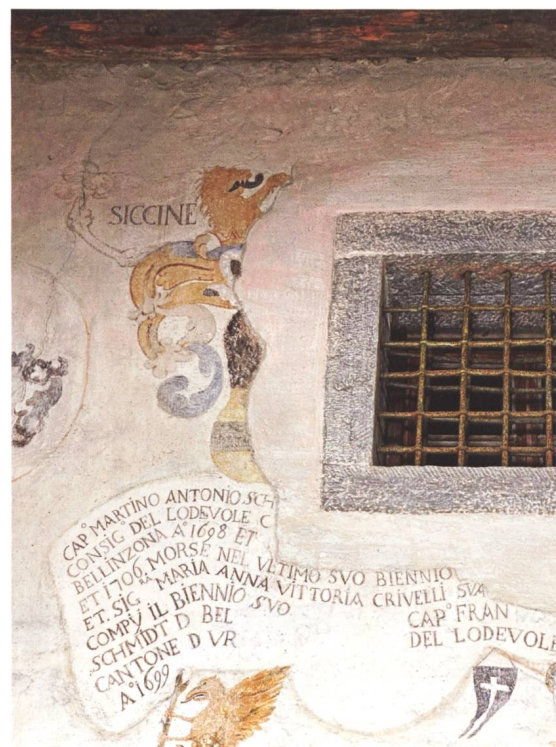 SICCINE
CAP° MARTINO ANTONIO SCH
CONSIG° DEL LODEVOLE C
BELLINZONA A° 1698 ET
ET 1706 MORSE NEL VLTIMO SVO BIENNIO
ET. SIG.RA MARIA ANNA VITTORIA CRIVELLI SVA
COMPV̀ IL BIENNIO SVO
SCHMIDT D BEL
CANTONE D VR
A° 1699
CAP° FRAN
DEL LODEVOLE